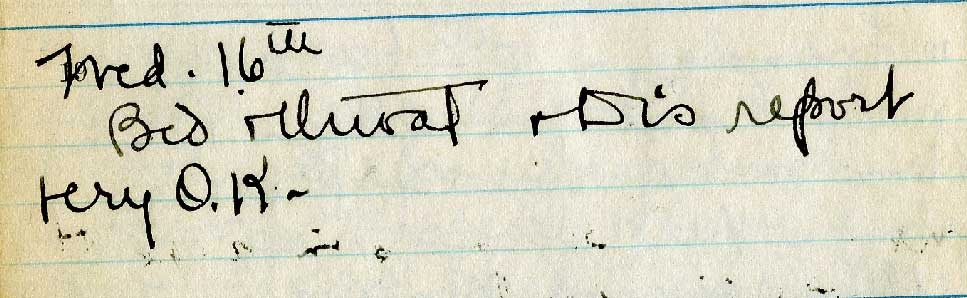 Wed. 16th
Bed + throat + Dr's report
very O.K-